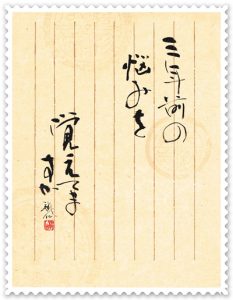 三年前の
悩みを
覚えてま
すか